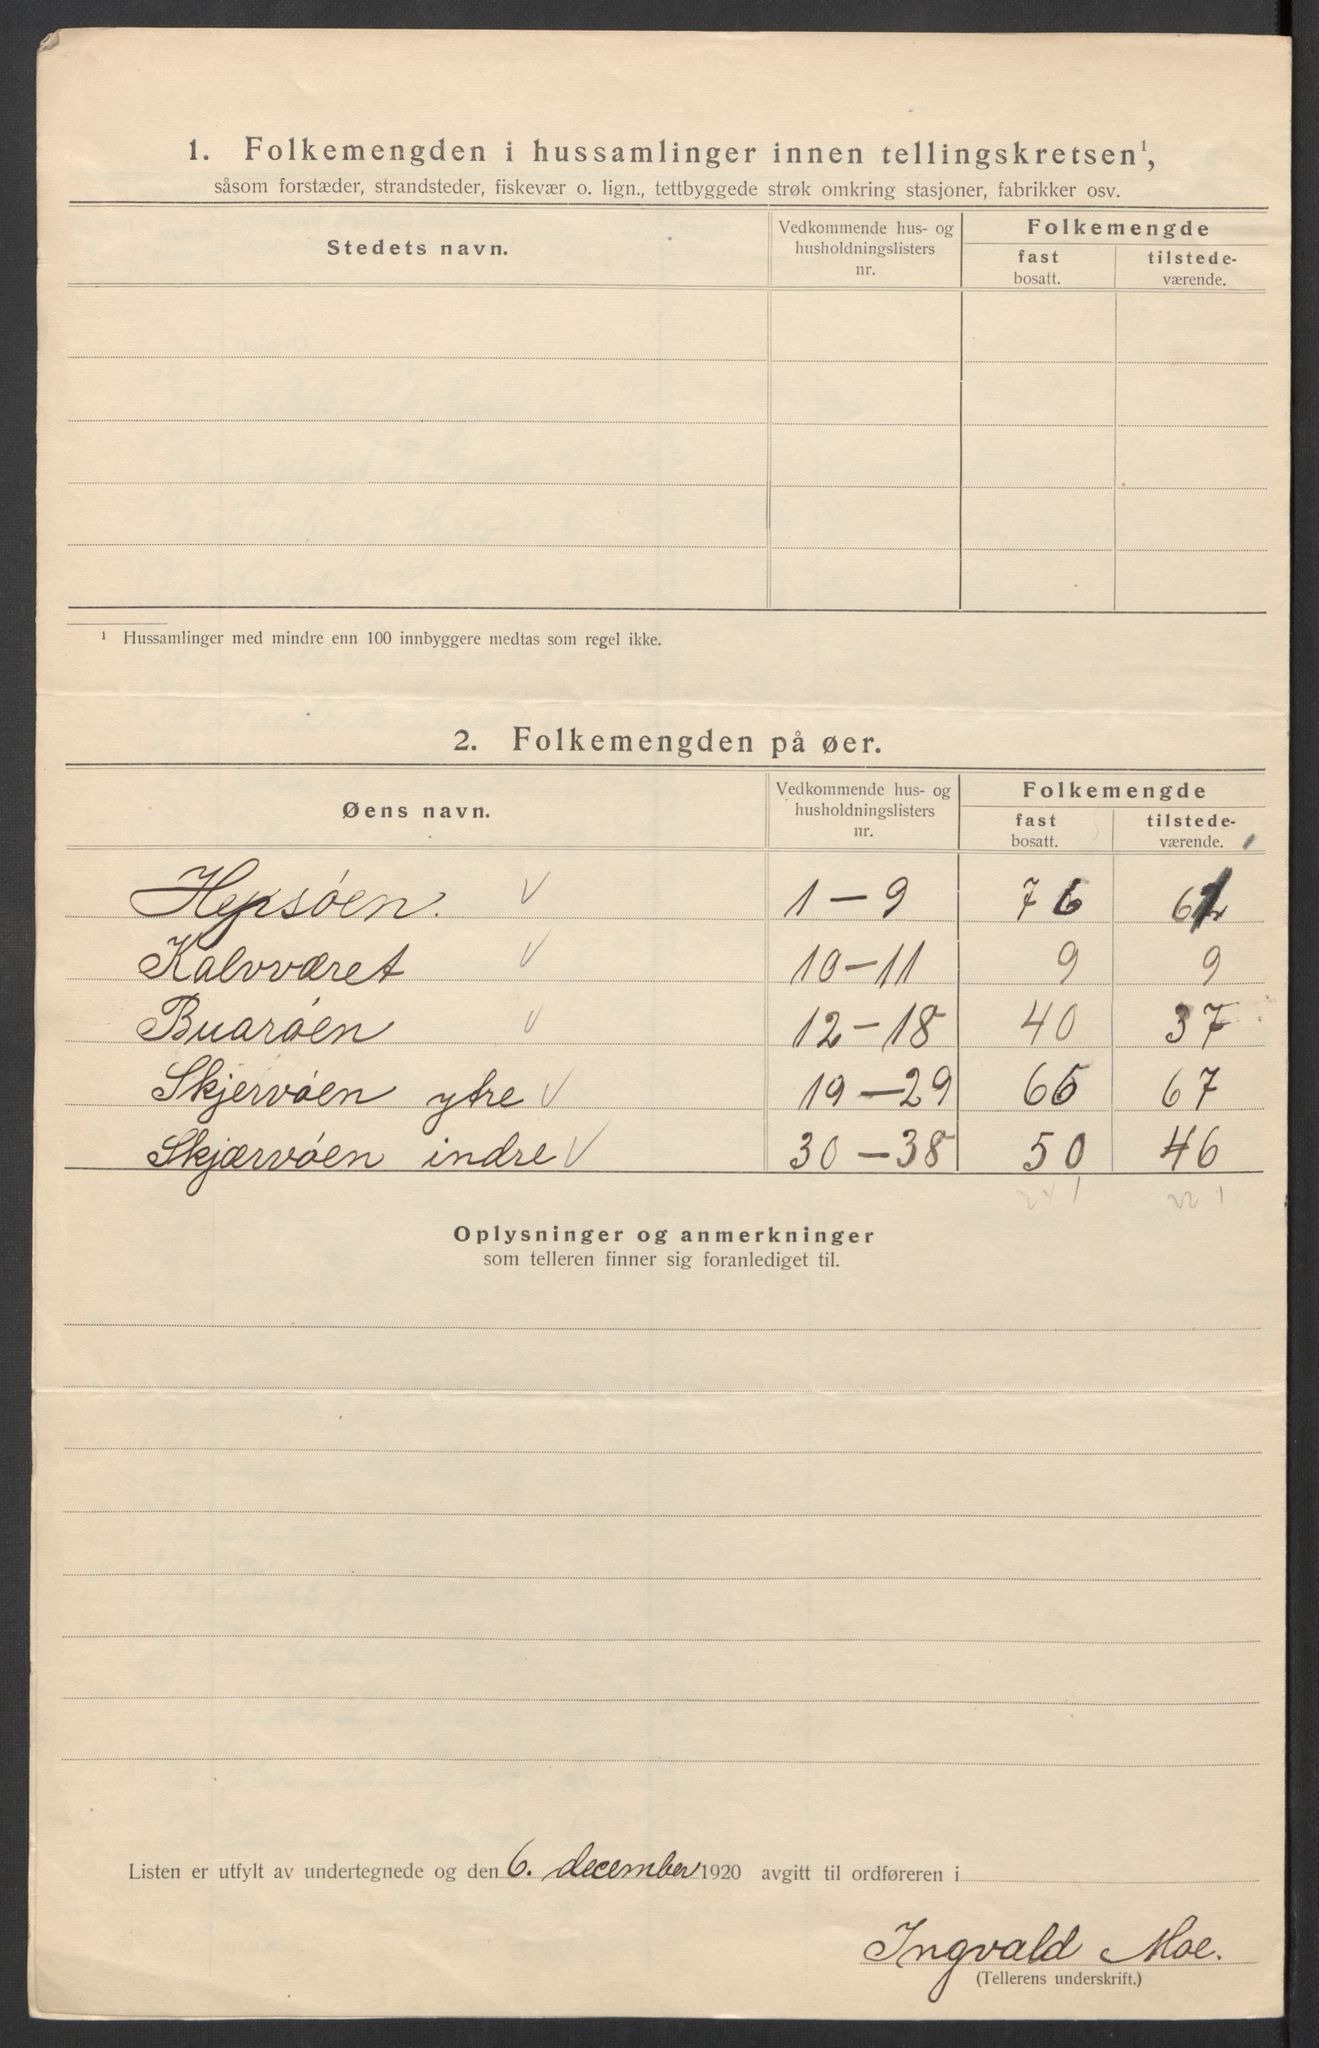 1. Folkemengden i hussamlinger innen tellingskretsen¹,
såsom forstæder, strandsteder, fiskevær o. lign., tettbyggede strøk omkring stasjoner, fabrikker osv.
Stedets navn.
Vedkommende hus- og husholdningslisters nr.
Folkemengde
fast bosatt.
tilstede-værende.
¹ Hussamlinger med mindre enn 100 innbyggere medtas som regel ikke.
2. Folkemengden på øer.
Øens navn.
Vedkommende hus- og husholdningslisters nr.
Folkemengde
fast bosatt.
tilstede-værende.
Hepsöen. 1 – 9 76
Kalvværet 10 – 11 9 9
Buaröen 12 – 18 40 37
Skjervöen ytre 19 – 29 67
Skjærvöen indre 30 – 38 50 46
241 221
Oplysninger og anmerkninger
som telleren finner sig foranlediget til.
Listen er utfylt av undertegnede og den 6. december 1920 avgitt til ordføreren i
Ingvald Moe.
(Tellerens underskrift.)